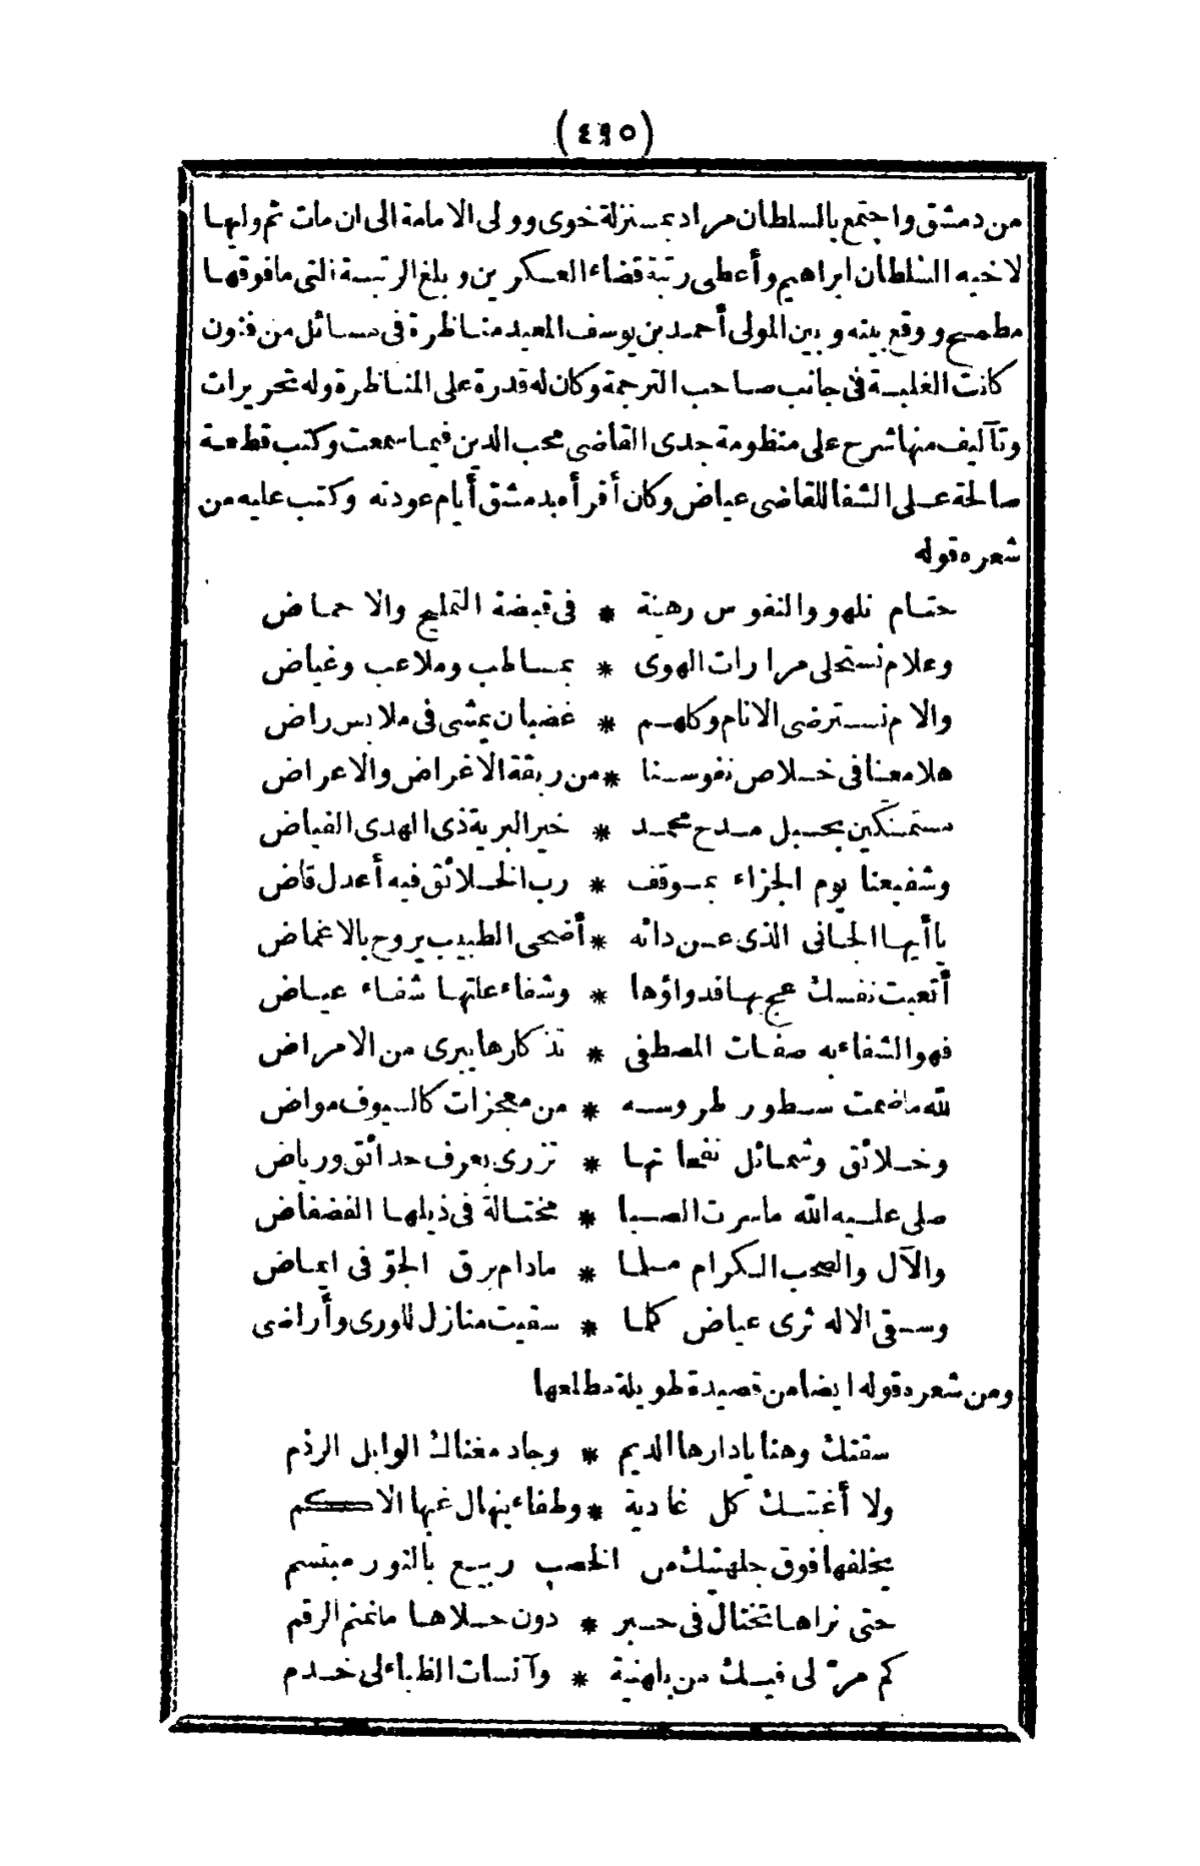 (٤٩٥)
من دمشق واجتمع بالسلطان مراد بمنزلة خوى وولى الامامة الى ان مات ثم وليها
لاخيه السلطان ابراهيم وأعطى رتبة قضاء العسكرين وبلغ الرتبسة التى مافوقها
مطمح ووقع بينه وبين المولى أحمد بن يوسف المعيد مناظرة فى مسائل من فنون
كانت الغلبة فى جانب صاحب الترجمة وكان له قدرة على المناظرة وله تحريرات
وتآليف منها شرح على منظومة جدى القاضى محب الدين فيما سمعت وكتب قطعة
صالحة على الشفا للقاضى عياض وكان أقرأه بدمشق أيام عودته وكتب عليه من
شعره قوله
حتام نلهو والنفوس رهينة * فى قبضة التمليح والاحماض
وعلام نستحلى مرارات الهوى * بمساطب وملاعب وغياض
والام نسترضى الانام وكلهم * غضبان يمشى فى ملابس راض
هلا معنا فى خلاص نفوسنا * من ربقة الاغراض والاعراض
مستمسكين بحبل مدح محمد * خير البرية ذى الهدى الفياض
وشفيعنا يوم الجزاء بموقف * رب الخلائق فيه أعدل قاض
يا أيها الجانى الذى عن دائه * أضحى الطبيب يروح بالاغماض
أتعبت نفسك عج بها فدواؤها * وشفاء علتها شفاء عياض
فهو الشفاء به صفات المصطفى * تذكارها يبرى من الامراض
لله ماضمت سطور طروسه * من معجزات كالسيوف مواض
وخلائق وشمائل نفحاتها * تزرى بعرف حدائق ورياض
صلى عليه الله ماسرت الصبا * مختالة فى ذيلها الفضفاض
والآل والصحب الكرام مسلما * مادام برق الجوّ فى ايماض
وسقى الاله ثرى عياض كلما * سقيت منازل للورى وأراضى
ومن شعره قوله ايضا من قصيدة طويلة مطلعها
سقتك وهنا يا دارها الديم * وجاد مغناك الوابل الرذم
ولا أغبتك كل غادية * وطفاء ينهال غبها الاكم
يخلفها فوق جلهتيك من الخصب ربيع بالنور مبتسم
حتى نراها تختال فى حبر * دون حلاها مانمنم الرقم
كم مرّ لى فيك من بلهنية * وآنسات الظباء لى خدم